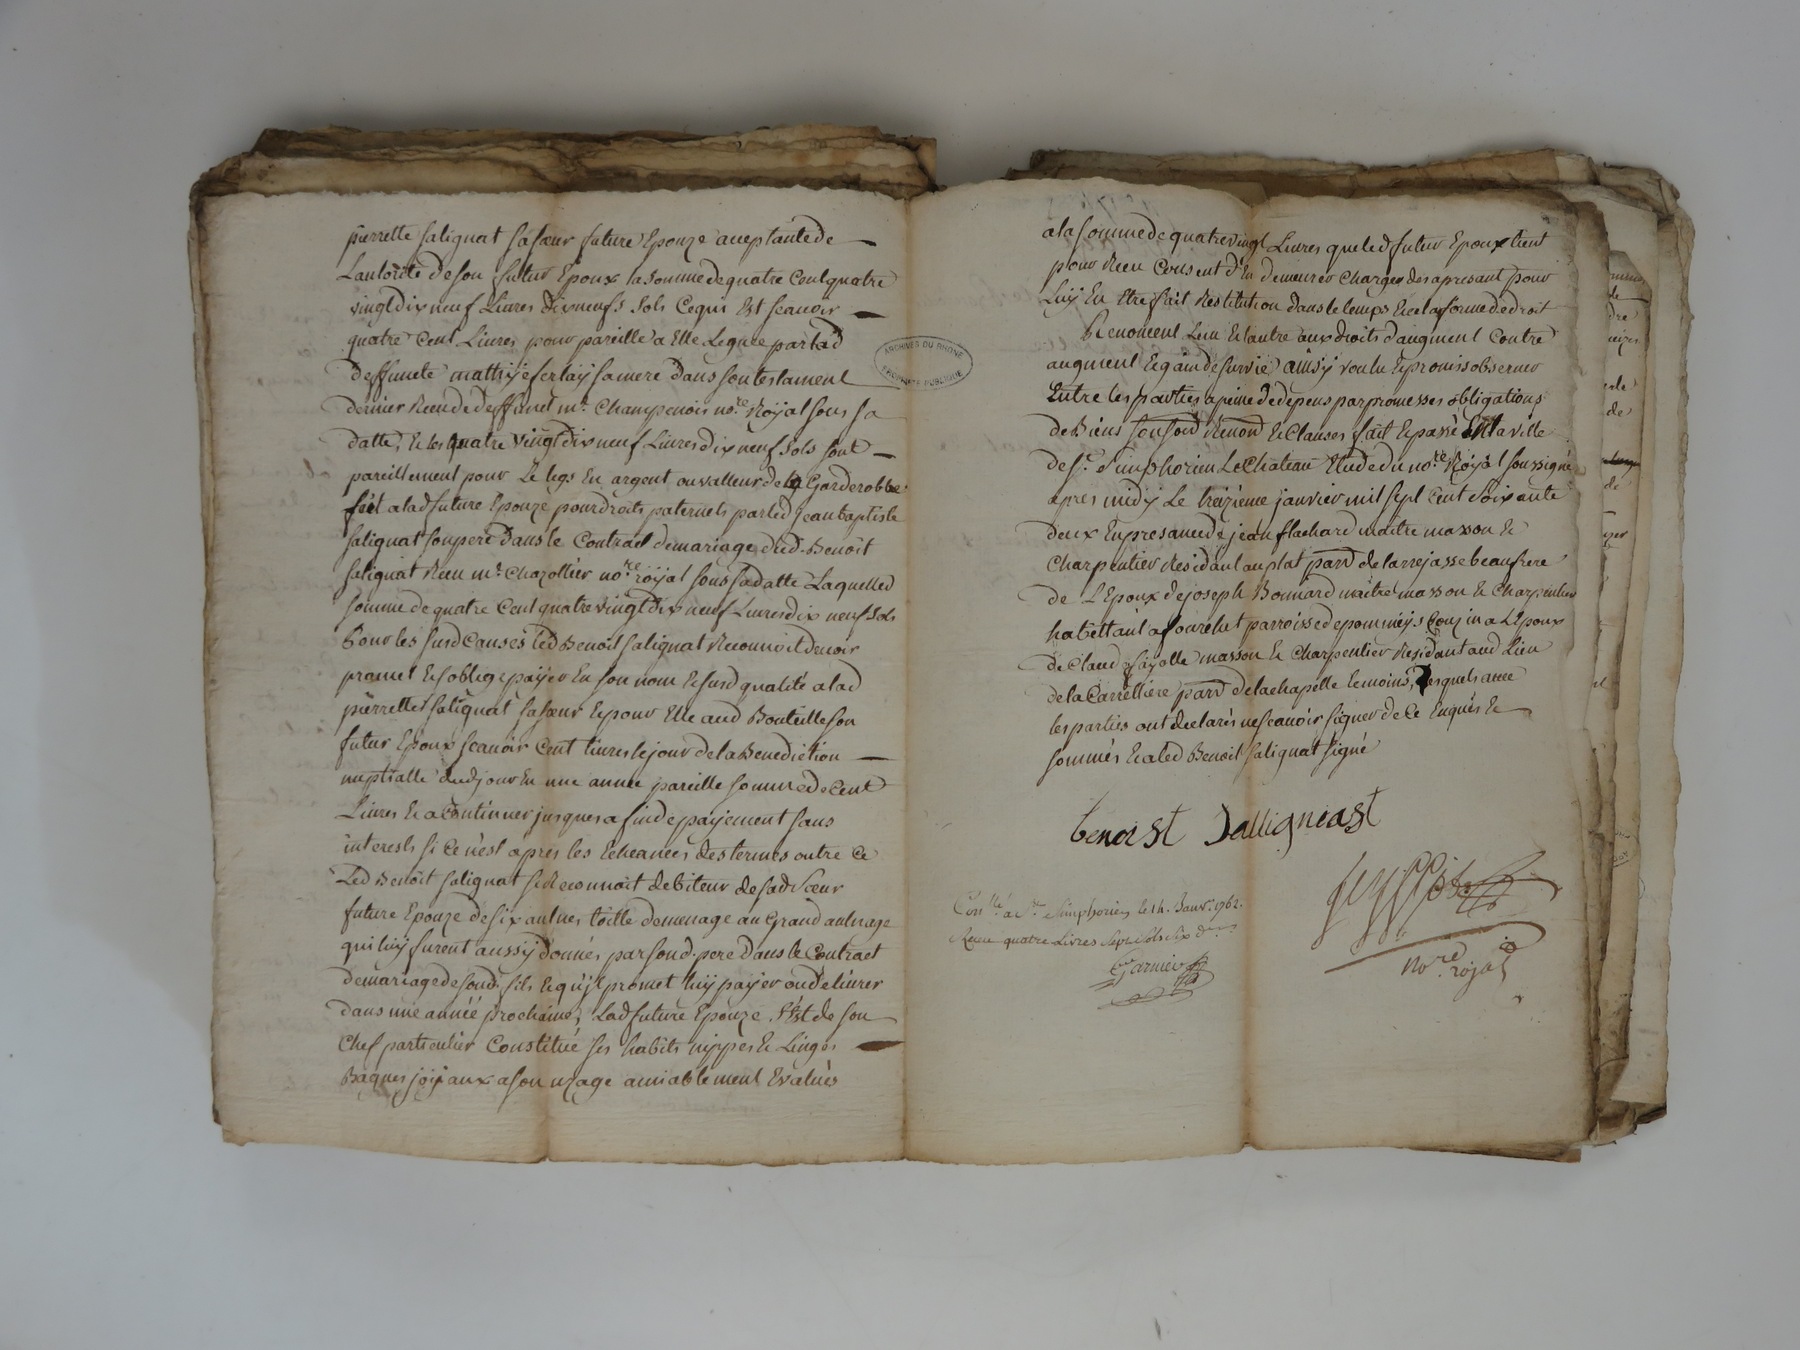 pierrette salignat sa sœur future Epouze acceptante de
L'autorité de son futur Epoux la somme de quatre cent quatre
vingt dix neuf Livres dix neufs sols Ce qui Est scauoir
quatre Cent Livres pour pareille a Elle Leguée par lad
deffuncte sa mere dans son testament
dernier Receu ded deffunct mr. Champenois nore. Royal sous sa
datte, & les quatre vingt dix neuf Livres dix neuf sols sont
pareillement pour Le legs En argent ou valleur de la Garderobbe
fait a lad future Epouze pour droits paternels par led jean baptiste
salignat son pere dans le Contract de mariage dud. Benoit
salignat Receu mr. Chazottier nore. royal sous sa datte Laquelled
somme de quatre Cent quatre vingt dix neuf Livres dix neuf sols
Pour les susd Causes led Benoit salignat Reconnoit devoir
promet & s'oblige payer En son nom & susd qualité a lad
pierrette salignat sa sœur & pour Elle aud Bouteille son
futur Epoux scauoir Cent livres le jour de la Benediction
nuptialle dud jour En une année pareille somme de Cent
Livres & a Continuer jusques a fin de payement sans
interests si Ce n'est apres les Echeances des termes outre Ce
Led Benoit salignat se Reconnoit debiteur de sad sœur
future Epouze de six aulnes toille de menage au Grand aulnage
qui luy furent aussy donnés par sond. pere dans le Contract
de mariage de sond. fils & qu'il promet luy payer ou delivrer
dans une année prochaine, Lad future Epouze s'Est de son
Chef particulier Constitué ses habits nippes & Linges
Bagues joyaux a son uzage amiablement Evalués
ARCHIVES DU RHONE
PROPRIÉTÉ PUBLIQUE
a la somme de quatre vingt Livres que led futur Epoux tient
pour Receu Consent d'En demeurer Charger des apresant pour
Luy En Etre fait Restitution dans le temps & en la forme de droit
Renoncent L'un & L'autre aux droits d'augment Contre
augment & gain de survie ainsy voulu & promis observer
Entre les parties a peine de depens par promesses obligations
de Biens Renon & Clauses fait & passé En la ville
de st. simphorien Le Chateau Etude du nore. Royal soussigné
apres midy Le treizieme janvier mil sept Cent soixante
deux En presance de jean flachard maitre masson &
Charpentier Residant au plat parr de larrejasse beaufrere
de L'Epoux de joseph Bonnard maitre masson & Charpentier
habittant a fourchet parroisse de pommeys Couzin a L'Epoux
de Claud fayolle masson & Charpentier Residant aud Lieu
de la Carrettiere parr de la chapelle temoins, Lesquels avec
les parties ont declarés ne scauoir signer de Ce Enquis &
sommés & a led Benoit salignat signé
benoist Salligneast
nore. royal
Conlle. a St. Simphorien le 14. Janvr. 1762.
Receu quatre Livres sept sols six drs
Garnier